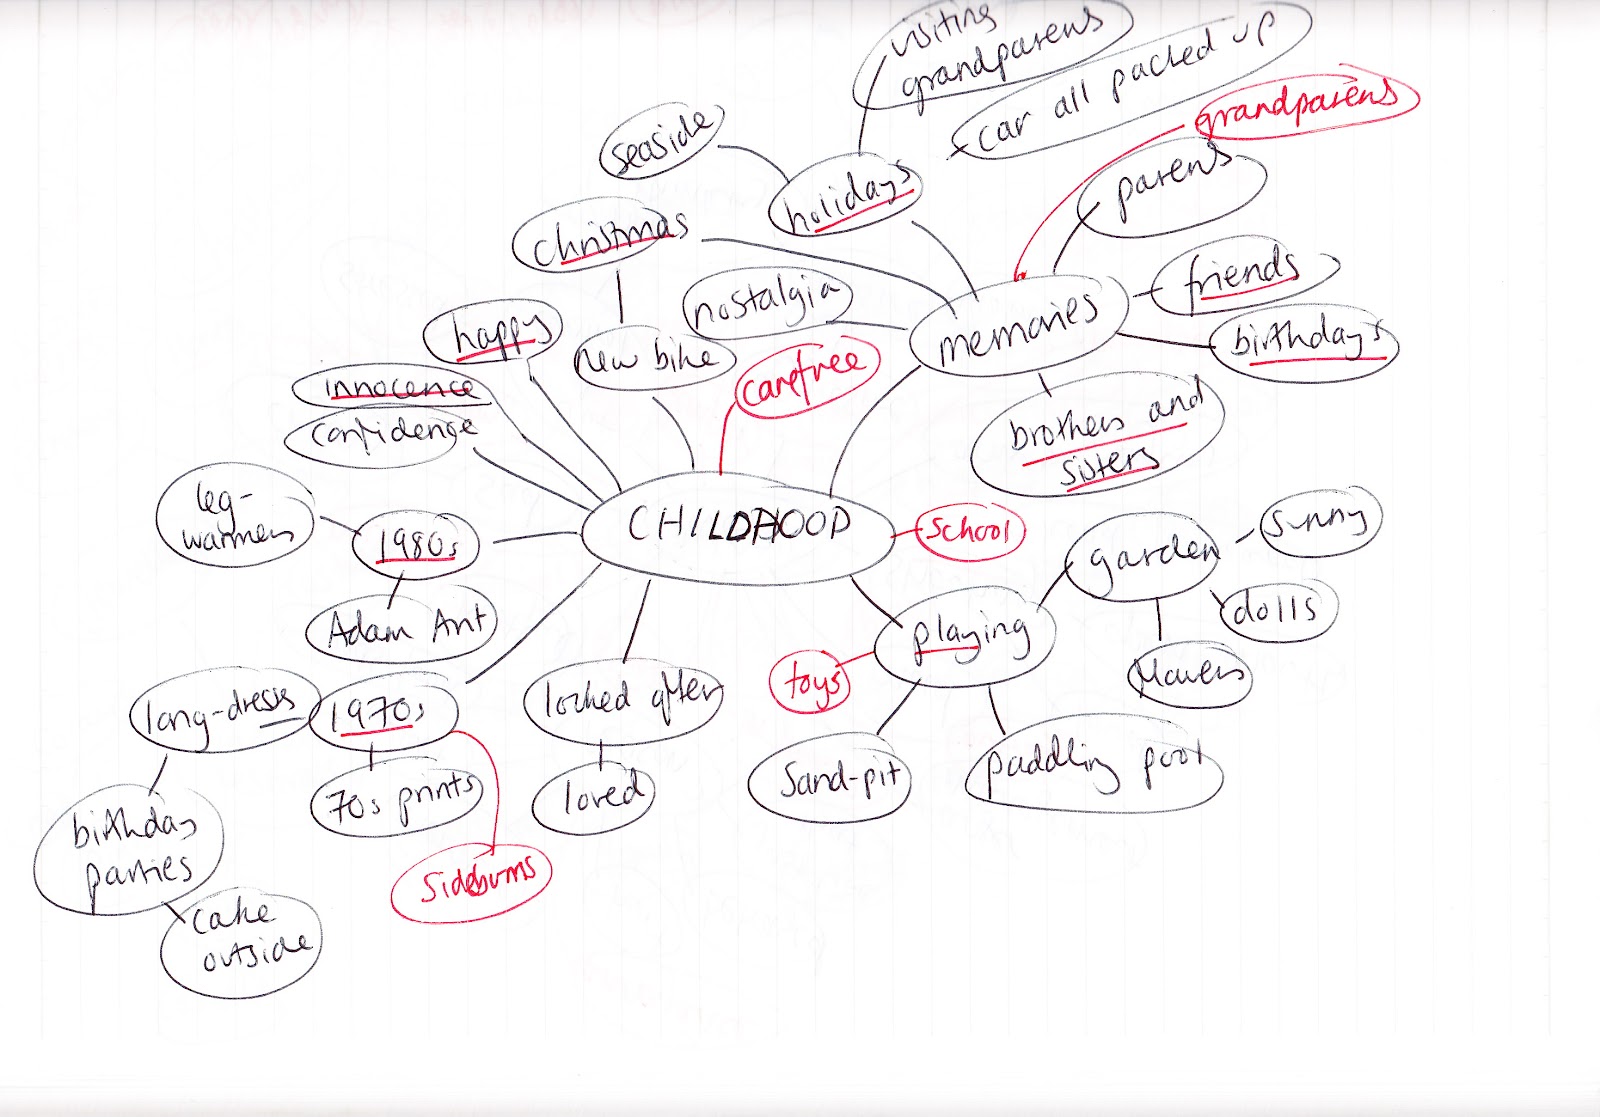 visiting
grandparents
car all packed up
grandparents
seaside
parents
holidays
christmas
friends
nostalgia
memories
birthdays
happy
new bike
carefree
innocence
confidence
brothers and
sisters
leg-
warmers
1980s
CHILDHOOD
school
garden
sunny
Adam Ant
playing
dolls
toys
flowers
long-dresses
1970s
looked after
70s prints
loved
sand-pit
paddling pool
birthday
parties
sideburns
cake
outside